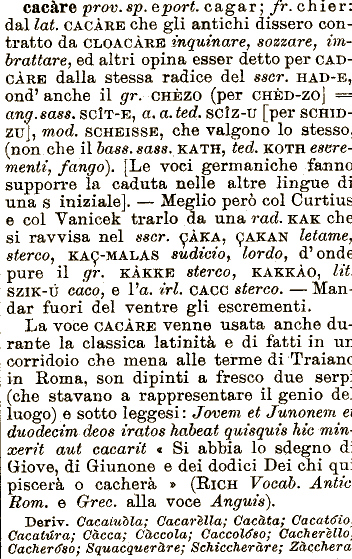 cacàre prov. sp. e port. cagar; fr. chier:
dal lat. CACÀRE che gli antichi dissero con-
tratto da CLOACÀRE inquinare, sozzare, im-
brattare, ed altri opina esser detto per CAD-
CÀRE dalla stessa radice del sscr. HAD-E,
ond' anche il gr. CHÈZO (per CHÈD-ZO] =
ang. sass. SCÎT-E, a. a. ted. SCÎZ-U [per SCHID-
ZU], mod. SCHEISSE, che valgono lo stesso,
(non che il bass. sass. KATH, ted. KOTH escre-
menti, fango). [Le voci germaniche fanno
supporre la caduta nelle altre lingue di
una s iniziale]. — Meglio però col Curtius
e col Vanicek trarlo da una rad. KAK che
si ravvisa nel sscr. ÇÀKA, ÇAKAN letame,
sterco, KAÇ-MALAS sudicio, lordo, d' onde
pure il gr. KÀKKE sterco, KAKKÀO, lit.
SZIK-Ú caco, e l'a. irl. CACC sterco. — Man-
dar fuori del ventre gli escrementi.
La voce CACÀRE venne usata anche du-
rante la classica latinità e di fatti in un
corridoio che mena alle terme di Traiano
in Roma, son dipinti a fresco due serpi
(che stavano a rappresentare il genio del
luogo) e sotto leggesi: Jovem et Junonem et
duodecim deos iratos habeat quisquis hic min-
xerit aut cacarit « Si abbia lo sdegno di
Giove, di Giunone e dei dodici Dei chi qui
piscerà o cacherà » (RICH Vocab. Antic.
Rom. e Grec. alla voce Anguis).
Deriv. Cacaiuòla; Cacarèlla; Cacàta; Cacatóio;
Cacatúra; Càcca; Càccola; Caccolóso; Cacherèllo;
Cacheróso; Squacqueràre; Schiccheràre; Zàcchera.